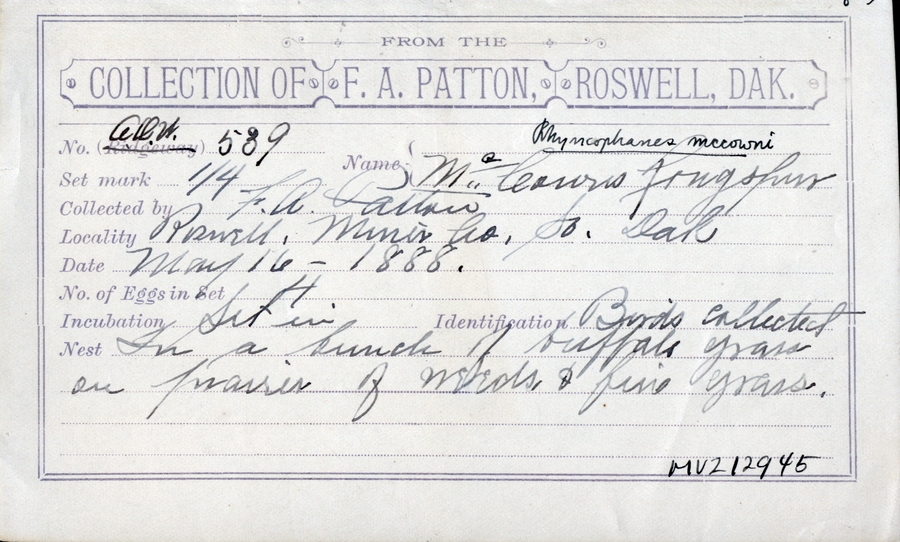 FROM THE
COLLECTION OF F. A. PATTON, ROSWELL, DAK.
Rhyncophanes mccowni
No. (Ridgeway) A.O.U. 539
Name Mc Cowns Longspur
Set mark 1/4
Collected by F. A. Patton
Locality Roswell, Miner Co, So. Dak
Date May 16 - 1888.
No. of Eggs in Set 4
Incubation Set in Identification Birds collected
Nest In a bunch of buffalo grass
on prairie of weeds & fine grass.
MVZ 12945